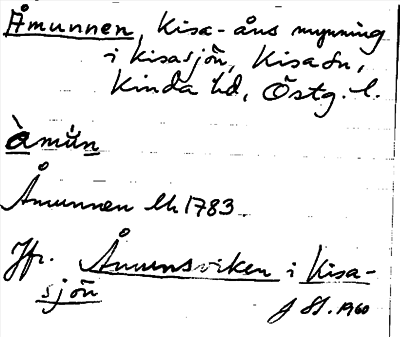 Åmunnen, Kisa-åns mynning
i Kisasjön, Kisa sn,
Kinda hd, Östg. l.
Åmunnen lk 1783.
Jfr. Åmunsviken i Kisa-
sjön
1960